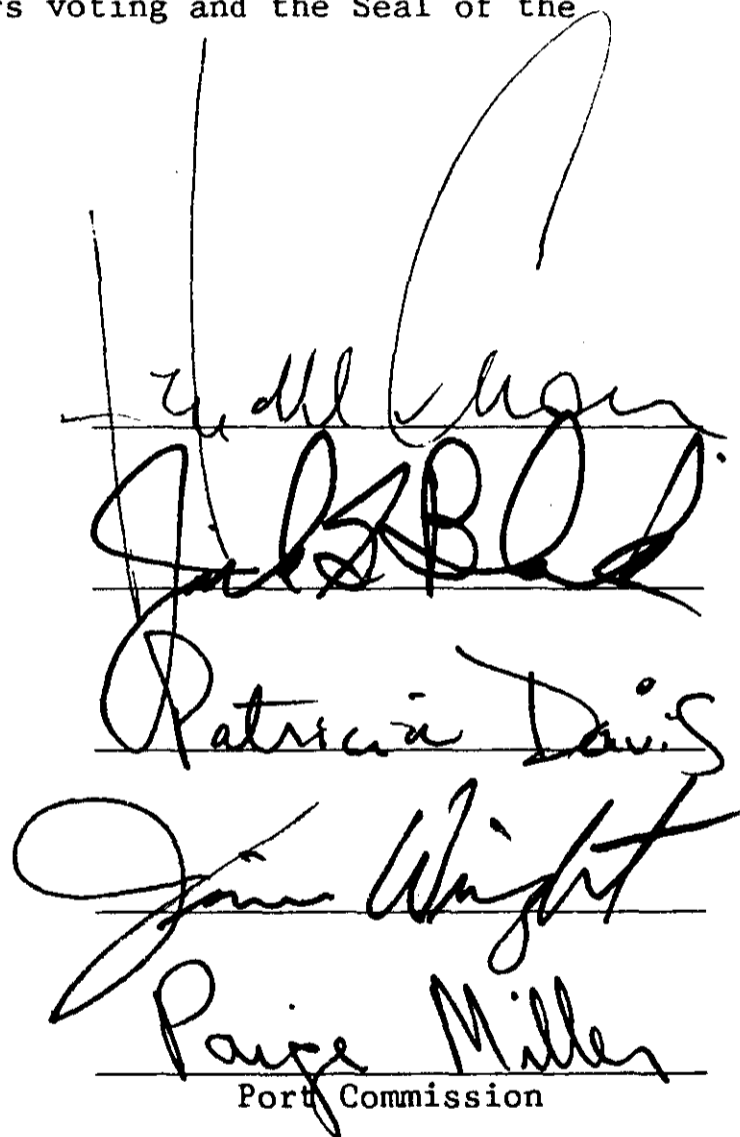 s voting and the Seal of the
Jack Block
Patricia Davis
Jim Wright
Paige Miller
Port Commission